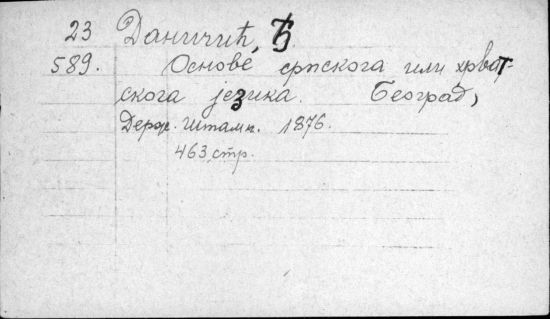 23 Даничић, Ђ.
589. Основе српскога или хрват-
скога језика. Београд,
Держ. Штамп. 1876.
463 стр.